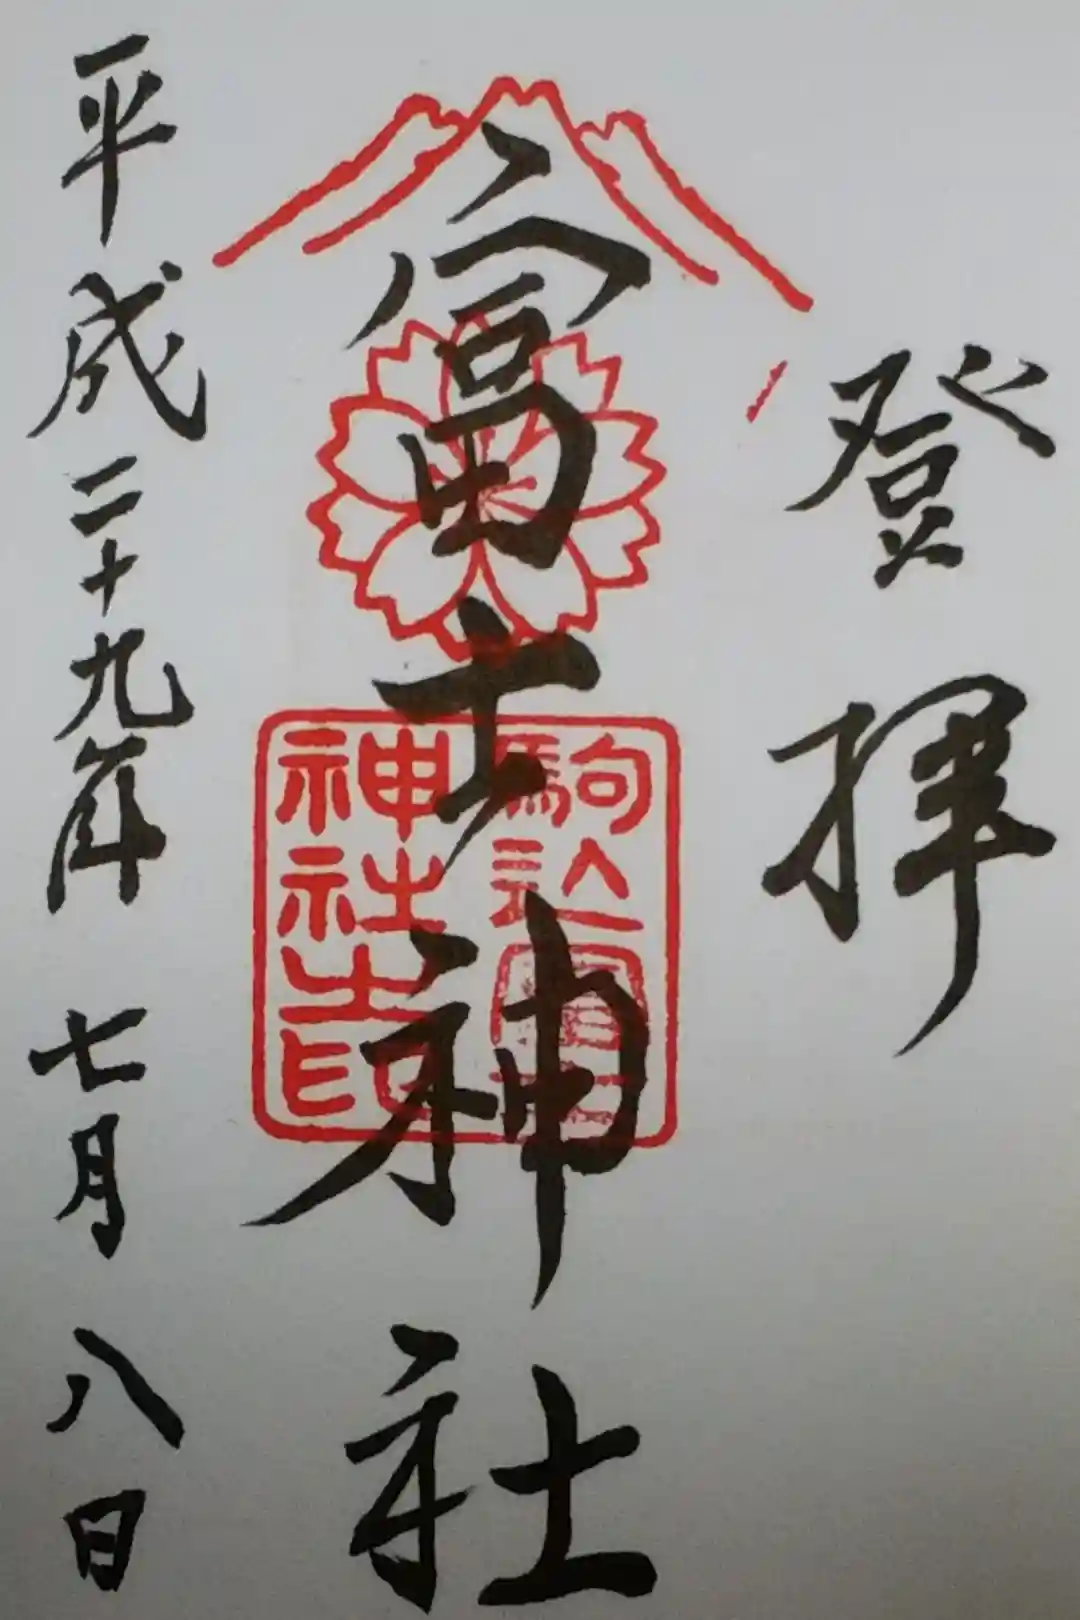 登拝
富士神社
駒込富士
神社之印
平成二十九年 七月八日